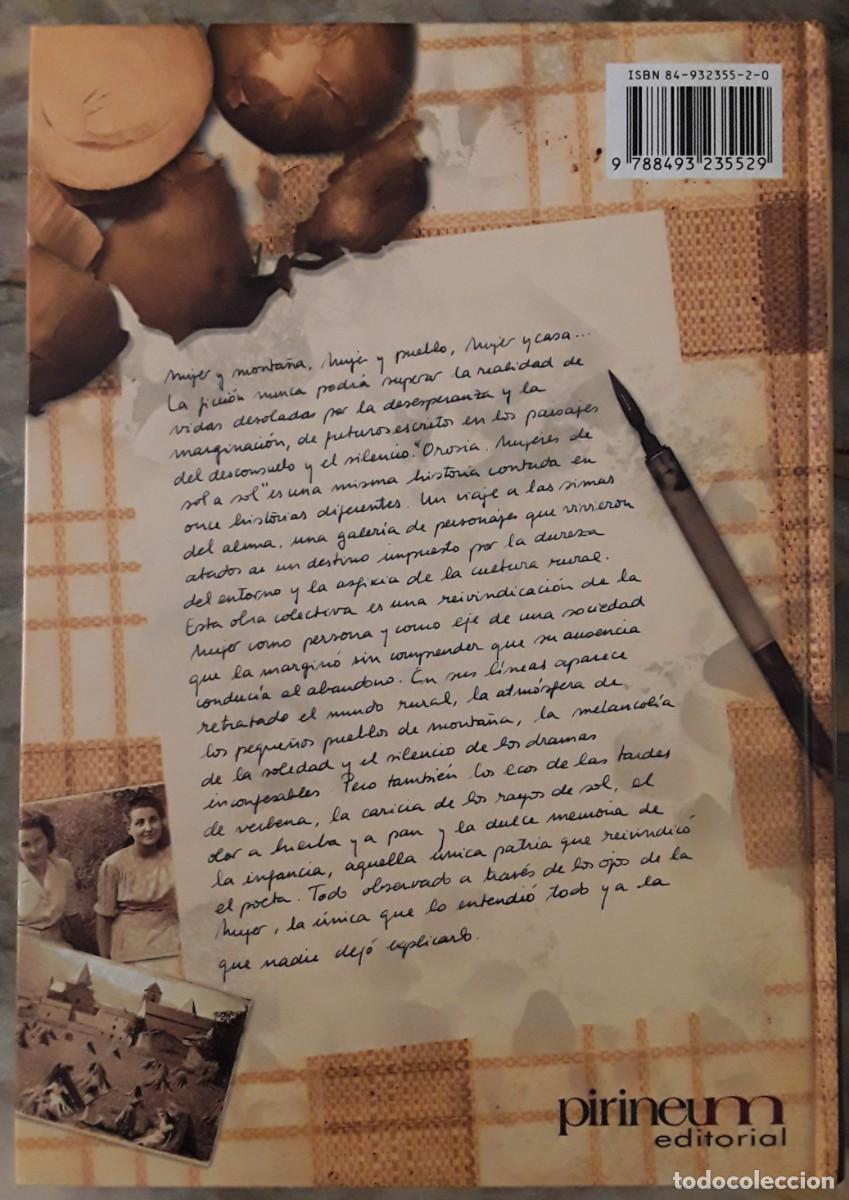 ISBN 84-932355-2-0
9 788493 235529
Mujer y montaña, Mujer y pueblo, Mujer y casa...
La ficción nunca podrá superar la realidad de
vidas desoladas por la desesperanza y la
marginación, de futuros escritos en los paisajes
del desconsuelo y el silencio. "Orosia. Mujeres de
sol a sol" es una misma historia contada en
once historias diferentes. Un viaje a las simas
del alma, una galería de personajes que vivieron
atados a un destino impuesto por la dureza
del entorno y la asfixia de la cultura rural.
Esta obra colectiva es una reivindicación de la
Mujer como persona y como eje de una sociedad
que la marginó sin comprender que su ausencia
conducía al abandono. En sus líneas aparece
retratado el mundo rural, la atmósfera de
los pequeños pueblos de montaña, la melancolía
de la soledad y el silencio de los dramas
inconfesables. Pero también los ecos de las tardes
de verbena, la caricia de los rayos de sol, el
olor a hierba y a pan y la dulce memoria de
la infancia, aquella única patria que reivindicó
el poeta. Todo observado a través de los ojos de la
Mujer, la única que lo entendió todo y a la
que nadie dejó explicarlo.
pirineum
editorial
todocoleccion